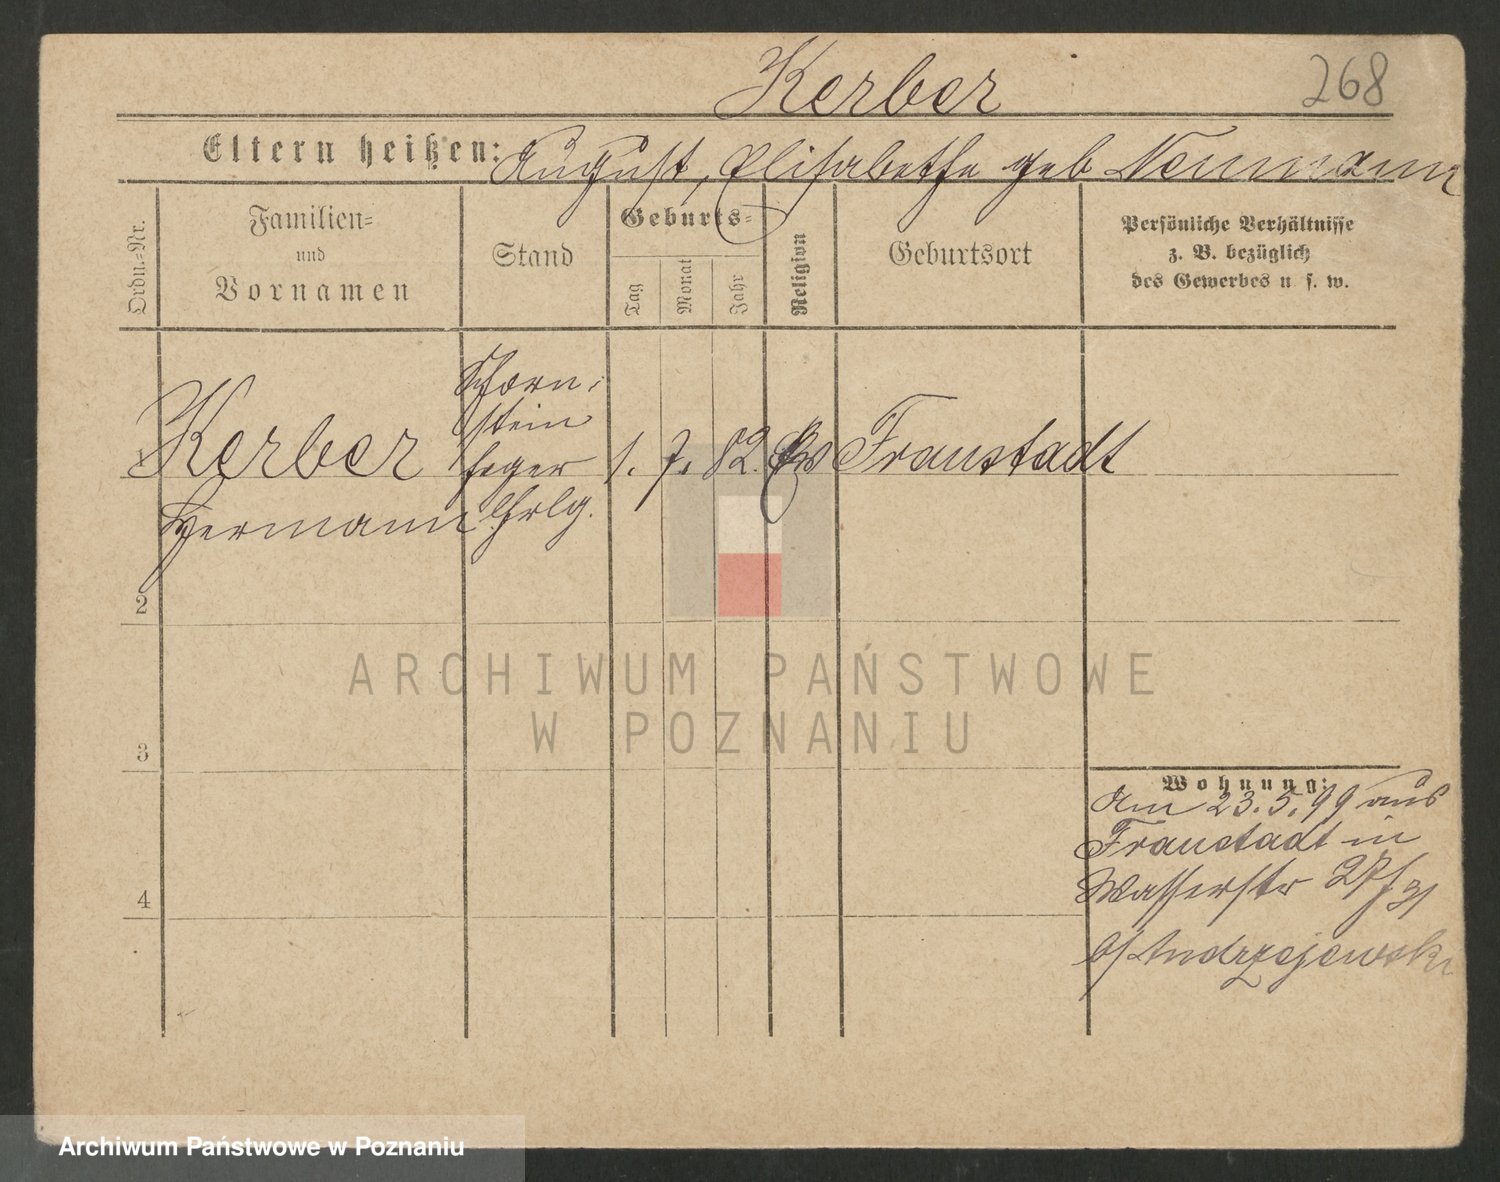 Kerber
268
Eltern heißen: August, Elisabethe geb Neumann
Ordn.=Nr.
Familien=
und
Vornamen
Stand
Geburts=
Tag
Monat
Jahr
Religion
Geburtsort
Persönliche Verhältnisse
z. B. bezüglich
des Gewerbes u s. w.
1
Kerber
Hermann
Schorn-
stein
feger
Lehrlg.
1. 7. 82. Ev Fraustadt
2
3
4
Wohnung:
Am 23.5.99 aus
Fraustadt in
Wasserstr 27/31
b/ Andrzejewski
ARCHIWUM PAŃSTWOWE
W POZNANIU
Archiwum Państwowe w Poznaniu